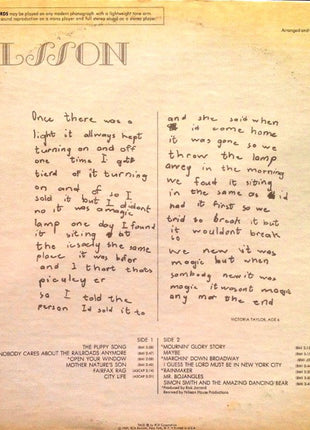 RDS may be played on any modern phonograph with a lightweight tone arm.
sound reproduction on a mono player and full stereo sound on a stereo player.
Arranged and
LSSON
Once there was a
light it allways kept
turning on and off
one time I gott
tierd of it turning
on and of so I
sold it but I didont
no it was a magic
lamp one day I found
it siting at
the icsacly the same
place it was befor
and I thort thats
piculyer
so I told the
person I'd sold it to
and she said when
it come home
it was gone so we
throw the lamp
awey in the morning
we foud it siting
in the same as did
had it first so we
trid so break it but
it wouldont break
so
we new it was
magic but when
sombady new it was
magic it wasont magic
any mor the end
VICTORIA TAYLOR, AGE 6
SIDE 1
THE PUPPY SONG
NOBODY CARES ABOUT THE RAILROADS ANYMORE
*OPEN YOUR WINDOW
MOTHER NATURE'S SON
FAIRFAX RAG
CITY LIFE
SIDE 2
*MOURNIN' GLORY STORY
MAYBE
*MARCHIN' DOWN BROADWAY
I GUESS THE LORD MUST BE IN NEW YORK CITY
*RAINMAKER
MR. BOJANGLES
SIMON SMITH AND THE AMAZING DANCING BEAR
Produced by Rick Jarrard